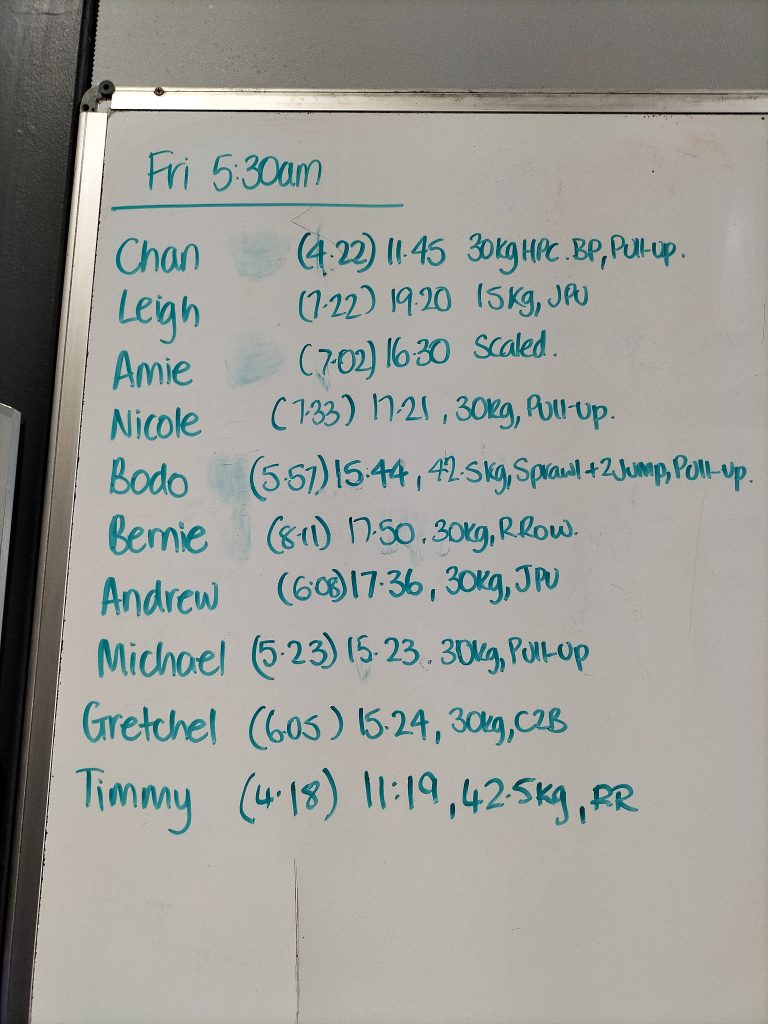 Fri 5:30am
Chan (4.22) 11.45 30kg HPC. BP, Pull-up.
Leigh (7.22) 19.20 15kg, JPU
Amie (7.02) 16.30 Scaled.
Nicole (7.33) 17.21, 30kg, Pull-up.
Bodo (5.57) 15.44, 42.5kg, Sprawl+2Jump, Pull-up.
Bernie (8.11) 17.50. 30kg, R.Row.
Andrew (6.08) 17.36, 30kg, JPU
Michael (5.23) 15.23. 30kg, Pull-up
Gretchel (6.05) 15.24, 30kg, C2B
Timmy (4.18) 11:19, 42.5kg, RR